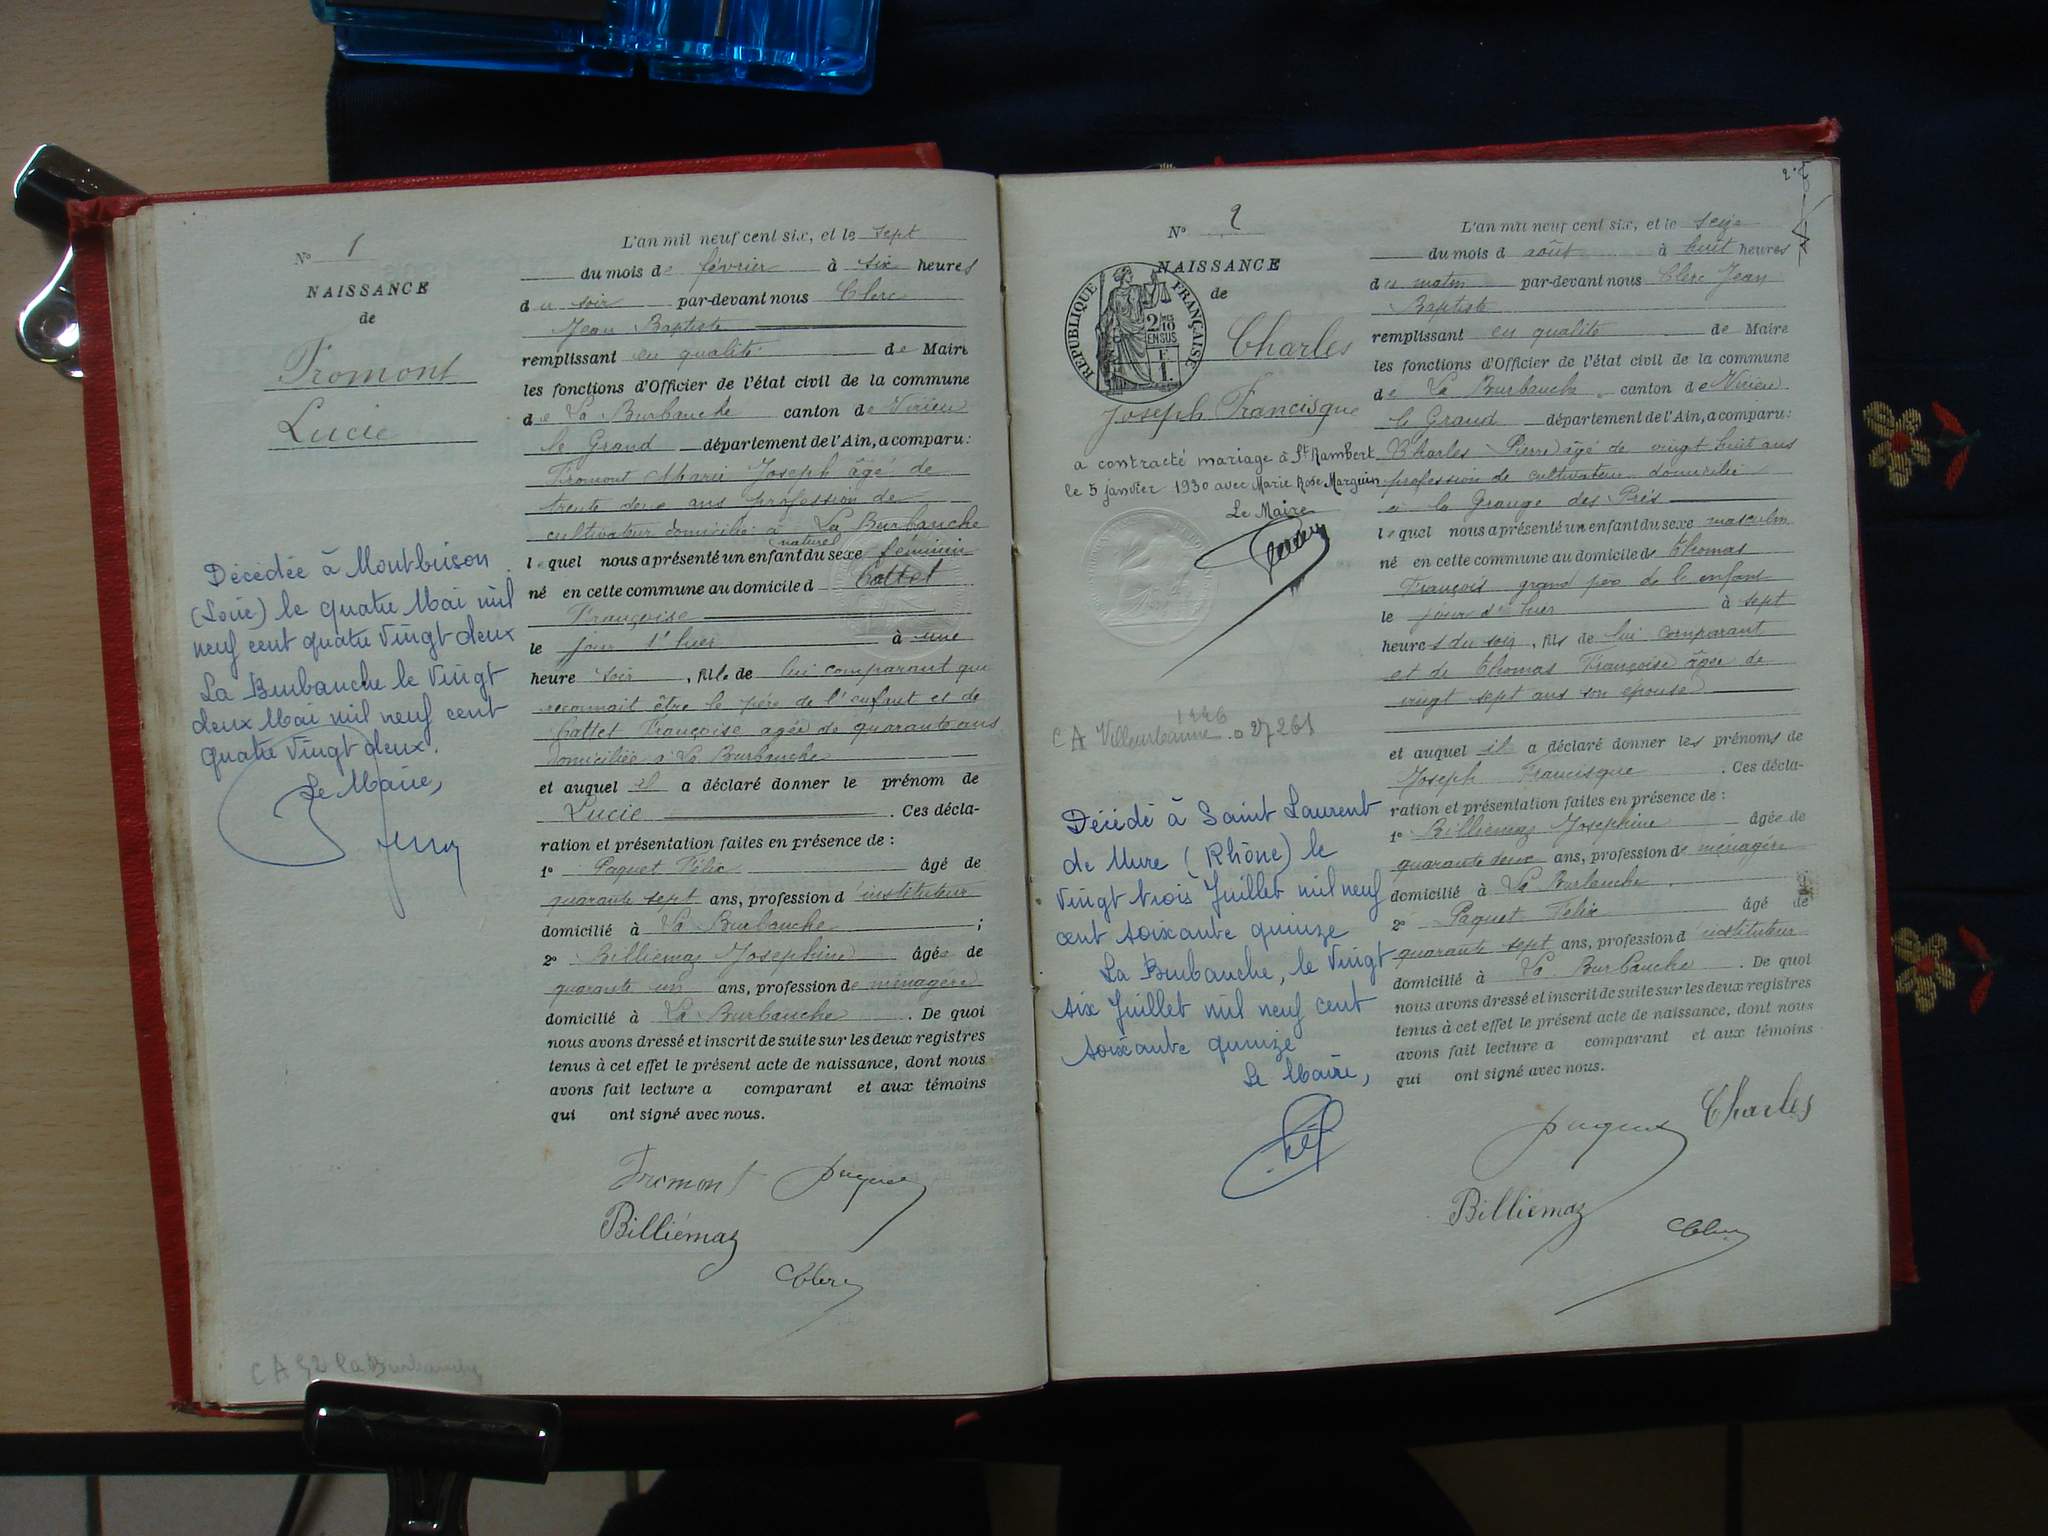 N° 1
NAISSANCE
de
Fromont
Lucie
Décédée à Montbrison
(Loire) le quatre Mai mil
neuf cent quatre vingt deux
La Burbanche le Vingt
deux Mai mil neuf cent
quatre vingt deux.
Le Maire,
L'an mil neuf cent six, et le sept
du mois de février à six heures
du soir par-devant nous Clerc
Jean Baptiste
remplissant en qualité de Maire
les fonctions d'Officier de l'état civil de la commune
de La Burbanche canton de Virieu
le Grand département de l'Ain, a comparu:
Fromont Marie Joseph âgé de
trente deux ans profession de
cultivateur domicilié à La Burbanche
naturel
lequel nous a présenté un enfant du sexe féminin
né en cette commune au domicile d Cattet
Françoise
le jour d'hier à une
heure soir, fille de lui comparant qui
reconnait être le père de l'enfant et de
Cattet Françoise agée de quarante ans
domiciliée à La Burbanche
et auquel il a déclaré donner le prénom de
Lucie. Ces décla-
ration et présentation faites en présence de :
1° Paquet Félix âgé de
quarante sept ans, profession d'instituteur
domicilié à La Burbanche ;
2° Billiémaz Josephine âgée de
quarante un ans, profession de ménagère
domicilié à La Burbanche. De quoi
nous avons dressé et inscrit de suite sur les deux registres
tenus à cet effet le présent acte de naissance, dont nous
avons fait lecture a comparant et aux témoins
qui ont signé avec nous.
Fromont Paquet
Billiémaz
Clerc
CA 52 La Burbanche
N° 2
NAISSANCE
de
RÉPUBLIQUE FRANÇAISE
2/10
EN SUS
Charles
Joseph Francisque
a contracté mariage à St Rambert
le 5 janvier 1930 avec Marie Rose Marguin
Le Maire
CA Villeurbanne 27261
Décédé à Saint Laurent
de Mure (Rhône) le
Vingt trois Juillet mil neuf
cent soixante quinze
La Burbanche, le Vingt
six Juillet mil neuf cent
soixante quinze
Le Maire,
L'an mil neuf cent six, et le seize
du mois d août à huit heures
du matin par-devant nous Clerc Jean
Baptiste
remplissant en qualité de Maire
les fonctions d'Officier de l'état civil de la commune
de La Burbanche canton de Virieu
le Grand département de l'Ain, a comparu:
Charles Pierre âgé de vingt huit ans
profession de cultivateur domicilié
à la Grange des Prés
lequel nous a présenté un enfant du sexe masculin
né en cette commune au domicile de Thomas
François grand père de l'enfant
le jour d'hier à sept
heures du soir, fils de lui comparant
et de Thomas Françoise âgée de
vingt sept ans son épouse
et auquel il a déclaré donner les prénoms de
Joseph Francisque. Ces décla-
ration et présentation faites en présence de :
1° Billiémaz Josephine âgée de
quarante deux ans, profession de ménagère
domicilié à La Burbanche.
2° Paquet Felix âgé de
quarante sept ans, profession d'instituteur
domicilié à La Burbanche. De quoi
nous avons dressé et inscrit de suite sur les deux registres
tenus à cet effet le présent acte de naissance, dont nous
avons fait lecture a comparant et aux témoins
qui ont signé avec nous.
Paquet Charles
Billiémaz
Clerc